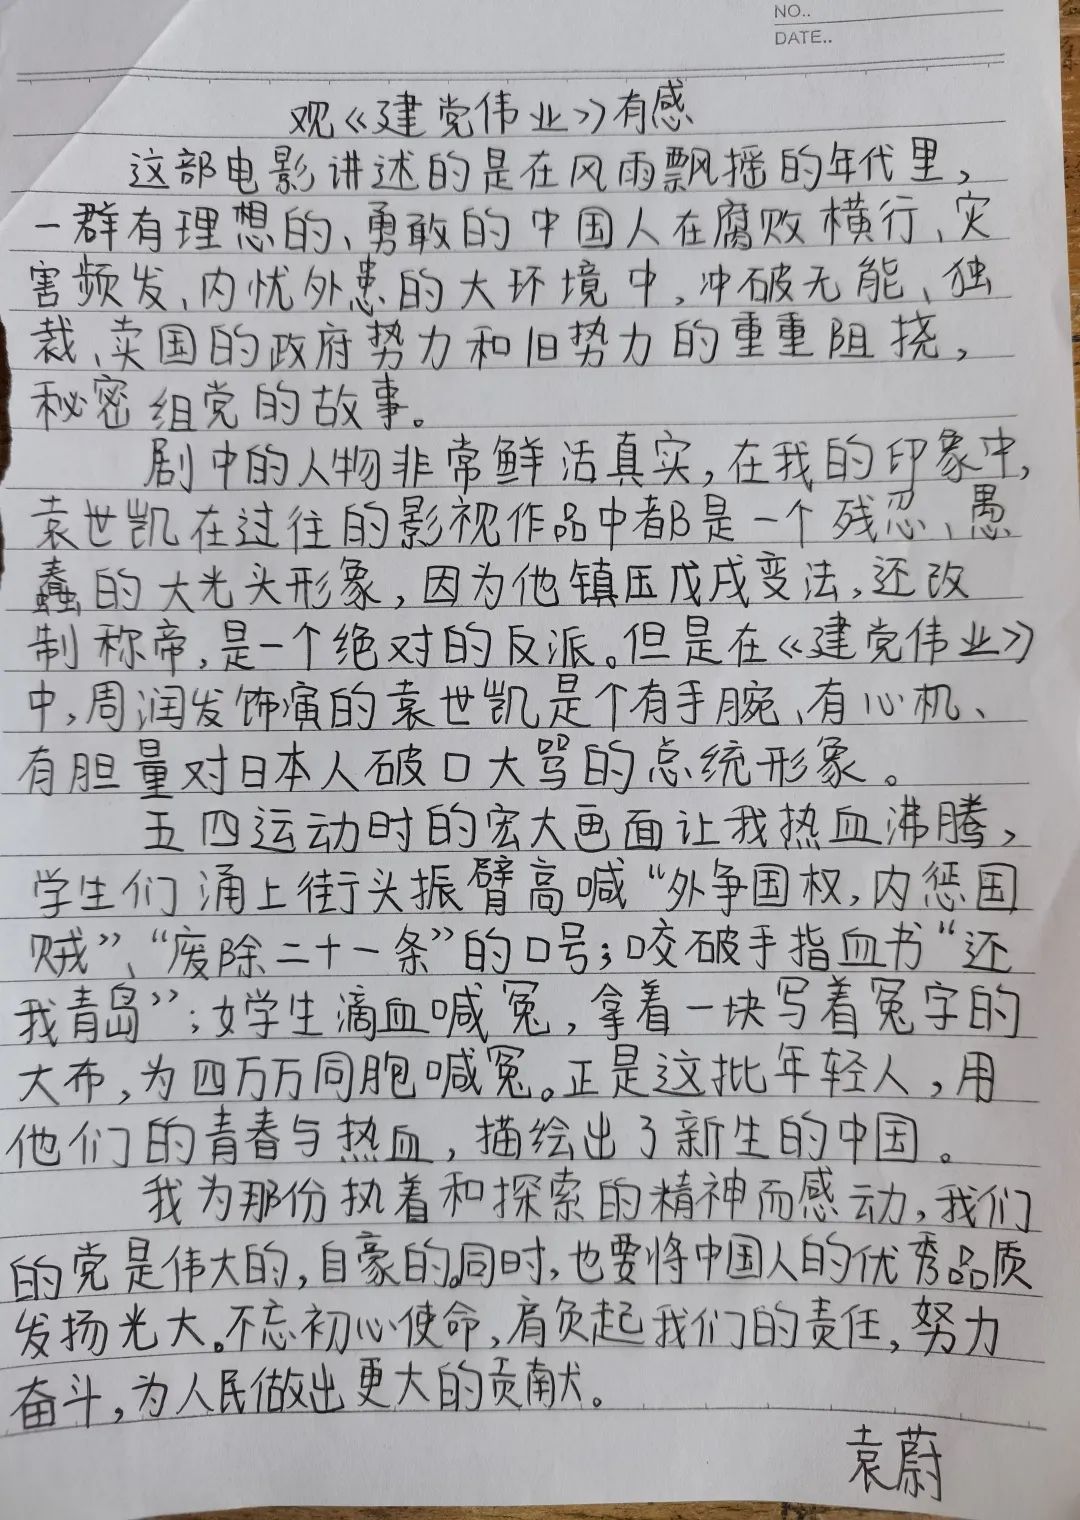 NO..
DATE..
观《建党伟业》有感
这部电影讲述的是在风雨飘摇的年代里,
一群有理想的、勇敢的中国人在腐败横行、灾
害频发、内忧外患的大环境中,冲破无能、独
裁、卖国的政府势力和旧势力的重重阻挠,
秘密组党的故事。
剧中的人物非常鲜活真实,在我的印象中,
袁世凯在过往的影视作品中都是一个残忍、愚
蠢的大光头形象,因为他镇压戊戌变法,还改
制称帝,是一个绝对的反派。但是在《建党伟业》
中,周润发饰演的袁世凯是个有手腕、有心机、
有胆量对日本人破口大骂的总统形象。
五四运动时的宏大画面让我热血沸腾,
学生们涌上街头振臂高喊“外争国权,内惩国
贼”、“废除二十一条”的口号;咬破手指血书“还
我青岛”;女学生滴血喊冤,拿着一块写着冤字的
大布,为四万万同胞喊冤。正是这批年轻人,用
他们的青春与热血,描绘出了新生的中国。
我为那份执着和探索的精神而感动,我们
的党是伟大的,自豪的。同时,也要将中国人的优秀品质
发扬光大。不忘初心使命,肩负起我们的责任,努力
奋斗,为人民做出更大的贡献。
袁蔚